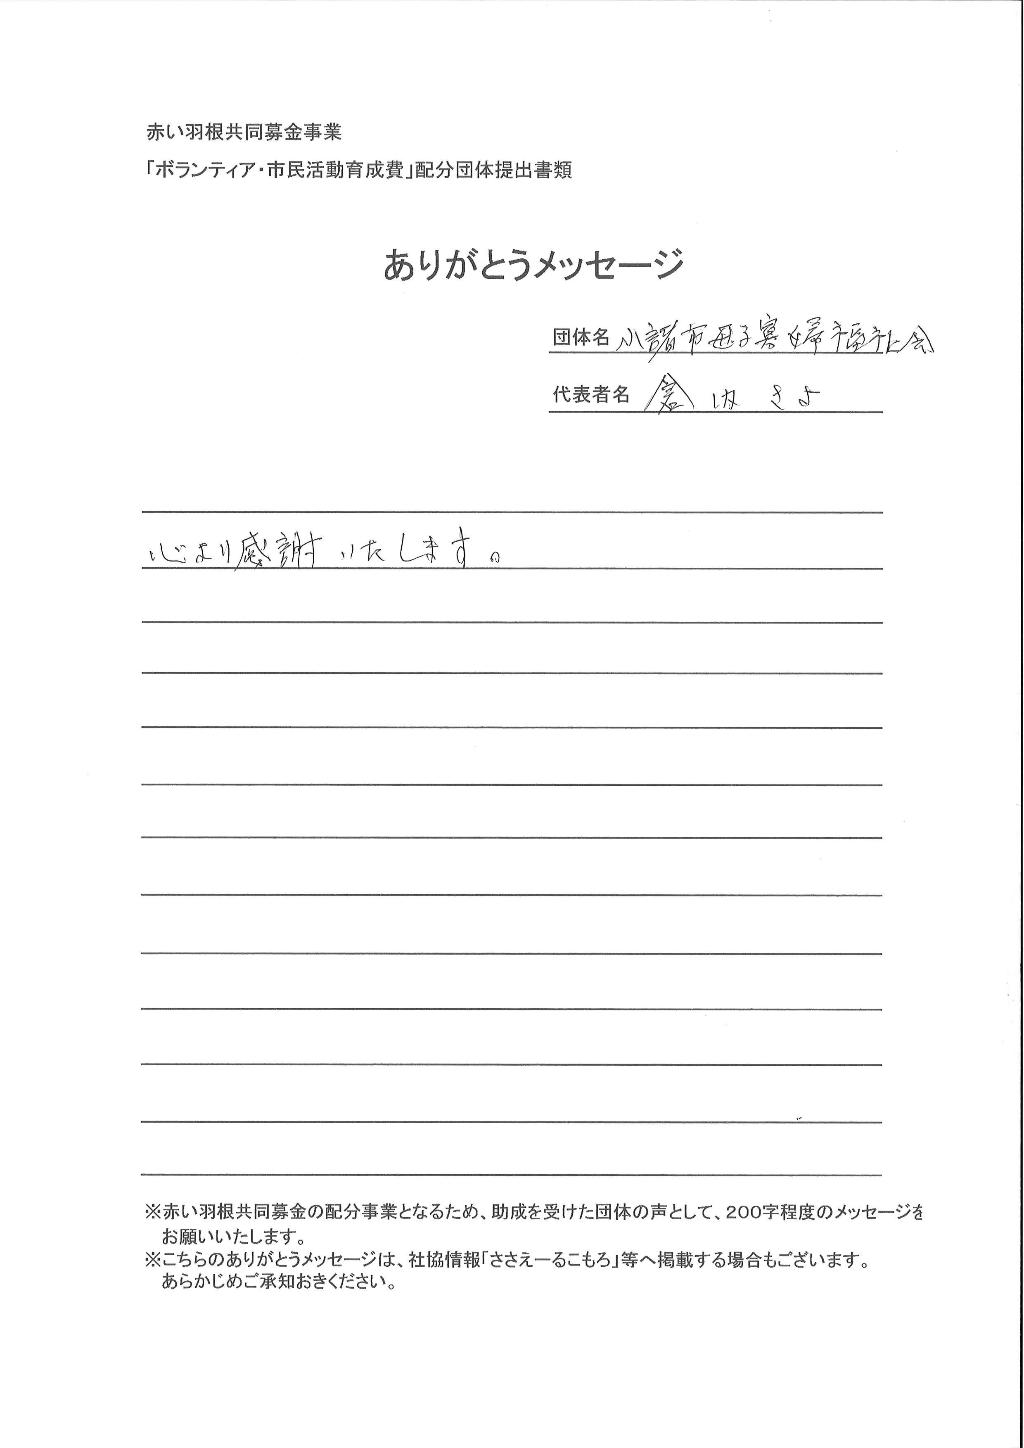 赤い羽根共同募金事業
「ボランティア・市民活動育成費」配分団体提出書類
ありがとうメッセージ
団体名 小諸市母子寡婦福祉会
代表者名 倉内 きよ
心より感謝いたします。
※赤い羽根共同募金の配分事業となるため、助成を受けた団体の声として、200字程度のメッセージを
お願いいたします。
※こちらのありがとうメッセージは、社協情報「ささえーるこもろ」等へ掲載する場合もございます。
あらかじめご承知おきください。